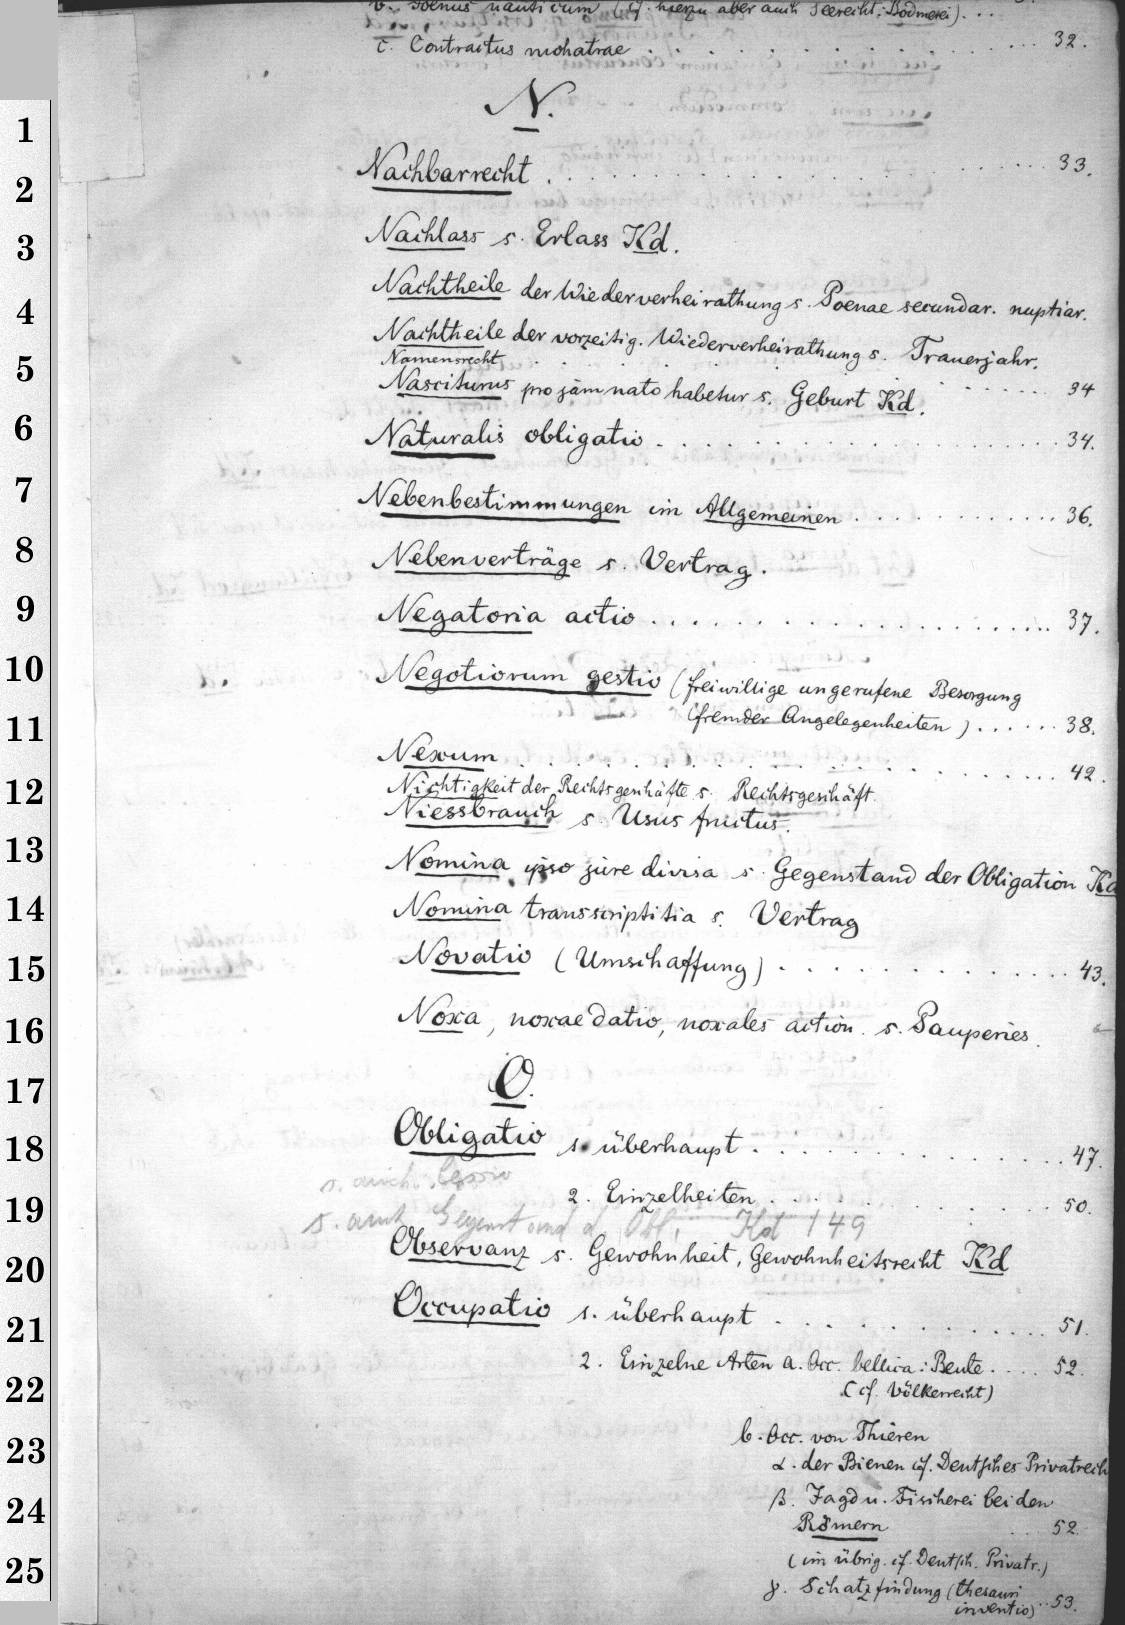 b. Foenus nauticum (cf. hierzu aber auch Seerecht, Bodmerei). . .
c. Contractus mohatrae . . . . . . . . . . 32.
N.
Nachbarrecht . . . . . . . . . . 33.
Nachlass s. Erlass Kd.
Nachtheile der Wiederverheirathung s. Poenae secundar. nuptiar.
Nachtheile der vorzeitig. Wiederverheirathung s. Trauerjahr.
Namensrecht . . . . . . . . . . 34
Nasciturus pro jam nato habetur s. Geburt Kd.
Naturalis obligatio . . . . . . . . . . 34.
Nebenbestimmungen im Allgemeinen . . . . . . . . . . 36.
Nebenverträge s. Vertrag.
Negatoria actio . . . . . . . . . . 37.
Negotiorum gestio (freiwillige ungerufene Besorgung
fremder Angelegenheiten) . . . . . . 38.
Nexum . . . . . . . . . . 42.
Nichtigkeit der Rechtsgeschäfte s. Rechtsgeschäft.
Niessbrauch s. Usus fructus.
Nomina ipso jure divisa s. Gegenstand der Obligation Kd
Nomina transscriptitia s. Vertrag
Novatio (Umschaffung) . . . . . . . . . . 43.
Noxa, noxae datio, noxales action. s. Pauperies.
O.
Obligatio 1. überhaupt . . . . . . . . . . 47.
s. auch Cessio
2. Einzelheiten . . . . . . . . . . 50.
s. auch Gegenstand d. Obl. Kd 149
Observanz s. Gewohnheit, Gewohnheitsrecht Kd
Occupatio 1. überhaupt . . . . . . . . . . 51.
2. Einzelne Arten a. Occ. bellica: Beute. . . . . 52.
(cf. Völkerrecht)
b. Occ. von Thieren
α. der Bienen cf. Deutsches Privatrech
β. Jagd u. Fischerei bei den
Römern . . . 52.
(im übrig. cf. Deutsch. Privatr.)
γ. Schatzfindung (thesauri
inventio) . . 53.
1
2
3
4
5
6
7
8
9
10
11
12
13
14
15
16
17
18
19
20
21
22
23
24
25